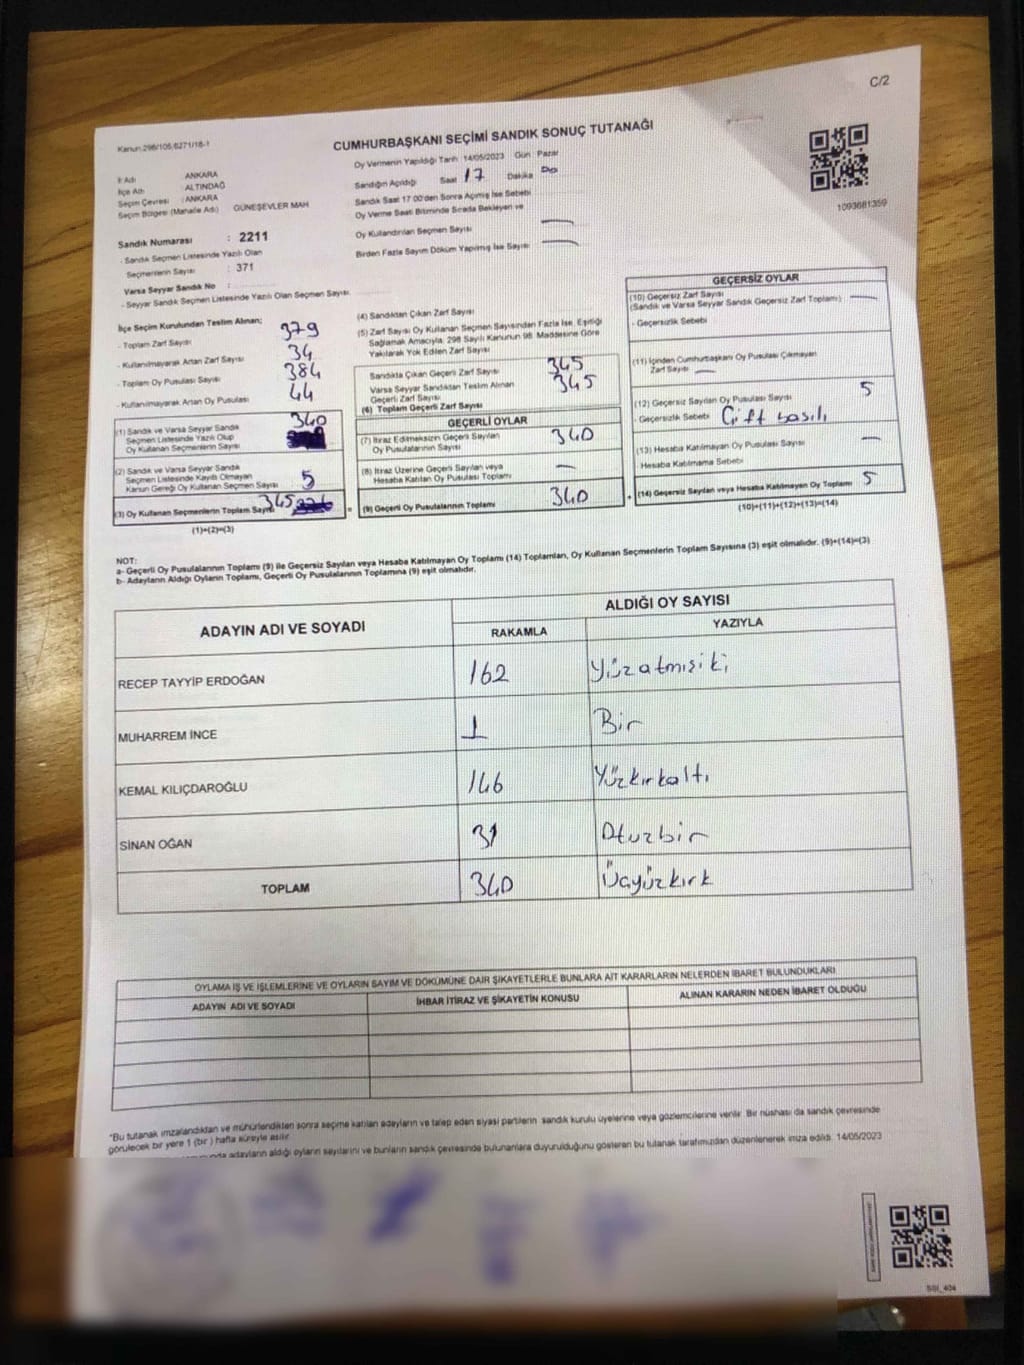 C/2
Kanun 298/105,6271/18-1
CUMHURBAŞKANI SEÇİMİ SANDIK SONUÇ TUTANAĞI
İl Adı ANKARA
İlçe Adı : ALTINDAĞ
Seçim Çevresi : ANKARA
Seçim Bölgesi (Mahalle Adı) GÜNEŞEVLER MAH
Sandık Numarası : 2211
- Sandık Seçmen Listesinde Yazılı Olan
Seçmenlerin Sayısı : 371
Varsa Seyyar Sandık No :
- Seyyar Sandık Seçmen Listesinde Yazılı Olan Seçmen Sayısı
Oy Vermenin Yapıldığı Tarih 14/05/2023 Gün Pazar
Sandığın Açıldığı Saat 17 Dakika 00
Sandık Saat 17 00'den Sonra Açımış İse Sebebi
Oy Verme Saati Bitiminde Sırada Bekleyen ve
Oy Kullandırılan Seçmen Sayısı —
Birden Fazla Sayım Döküm Yapılmış İse Sayısı —
1093681359
İlçe Seçim Kurulundan Teslim Alınan;
- Toplam Zarf Sayısı 379
- Kullanılmayarak Artan Zarf Sayısı 34
- Toplam Oy Pusulası Sayısı 384
- Kullanılmayarak Artan Oy Pusulası 44
(1) Sandık ve Varsa Seyyar Sandık 340
Seçmen Listesinde Yazılı Olup
Oy Kullanan Seçmenlerin Sayısı
(2) Sandık ve Varsa Seyyar Sandık
Seçmen Listesinde Kayıtlı Olmayan
Kanun Gereği Oy Kullanan Seçmen Sayısı 5
(3) Oy Kullanan Seçmenlerin Toplam Sayısı 345
(1)+(2)=(3)
(4) Sandıktan Çıkan Zarf Sayısı
(5) Zarf Sayısı Oy Kullanan Seçmen Sayısından Fazla İse, Eşitliği
Sağlamak Amacıyla, 298 Sayılı Kanunun 98. Maddesine Göre
Yakılarak Yok Edilen Zarf Sayısı
Sandıkta Çıkan Geçerli Zarf Sayısı 345
Varsa Seyyar Sandıktan Teslim Alınan
Geçerli Zarf Sayısı 345
(6) Toplam Geçerli Zarf Sayısı
GEÇERLİ OYLAR
(7) İtiraz Edilmeksizin Geçerli Sayılan
Oy Pusulalarının Sayısı 340
(8) İtiraz Üzerine Geçerli Sayılan veya
Hesaba Katılan Oy Pusulası Toplamı —
= (9) Geçerli Oy Pusulalarının Toplamı 340
GEÇERSİZ OYLAR
(10) Geçersiz Zarf Sayısı
(Sandık ve Varsa Seyyar Sandık Geçersiz Zarf Toplamı) —
- Geçersizlik Sebebi
(11) İçinden Cumhurbaşkanı Oy Pusulası Çıkmayan
Zarf Sayısı —
(12) Geçersiz Sayılan Oy Pusulası Sayısı 5
- Geçersizlik Sebebi Çift basılı
(13) Hesaba Katılmayan Oy Pusulası Sayısı —
Hesaba Katılmama Sebebi
+ (14) Geçersiz Sayılan veya Hesaba Katılmayan Oy Toplamı 5
(10)+(11)+(12)+(13)=(14)
NOT:
a- Geçerli Oy Pusulalarının Toplamı (9) ile Geçersiz Sayılan veya Hesaba Katılmayan Oy Toplamı (14) Toplamları, Oy Kullanan Seçmenlerin Toplam Sayısına (3) eşit olmalıdır. (9)+(14)=(3)
b- Adayların Aldığı Oyların Toplamı, Geçerli Oy Pusulalarının Toplamına (9) eşit olmalıdır.
ADAYIN ADI VE SOYADI
ALDIĞI OY SAYISI
RAKAMLA YAZIYLA
RECEP TAYYİP ERDOĞAN 162 Yüzatmışiki
MUHARREM İNCE 1 Bir
KEMAL KILIÇDAROĞLU 146 Yüzkırkaltı
SİNAN OĞAN 31 Otuzbir
TOPLAM 340 Üçyüzkırk
OYLAMA İŞ VE İŞLEMLERİNE VE OYLARIN SAYIM VE DÖKÜMÜNE DAİR ŞİKAYETLERLE BUNLARA AİT KARARLARIN NELERDEN İBARET BULUNDUKLARI
ADAYIN ADI VE SOYADI İHBAR İTİRAZ VE ŞİKAYETİN KONUSU ALINAN KARARIN NEDEN İBARET OLDUĞU
"Bu tutanak imzalandıktan ve mühürlendikten sonra seçime katılan adayların ve talep eden siyasi partilerin sandık kurulu üyelerine veya gözlemcilerine verilir. Bir nüshası da sandık çevresinde
görülecek bir yere 1 (bir ) hafta süreyle asılır.
adayların aldığı oyların sayılarını ve bunların sandık çevresinde bulunanlara duyurulduğunu gösteren bu tutanak tarafımızdan düzenlenerek imza edildi. 14/05/2023